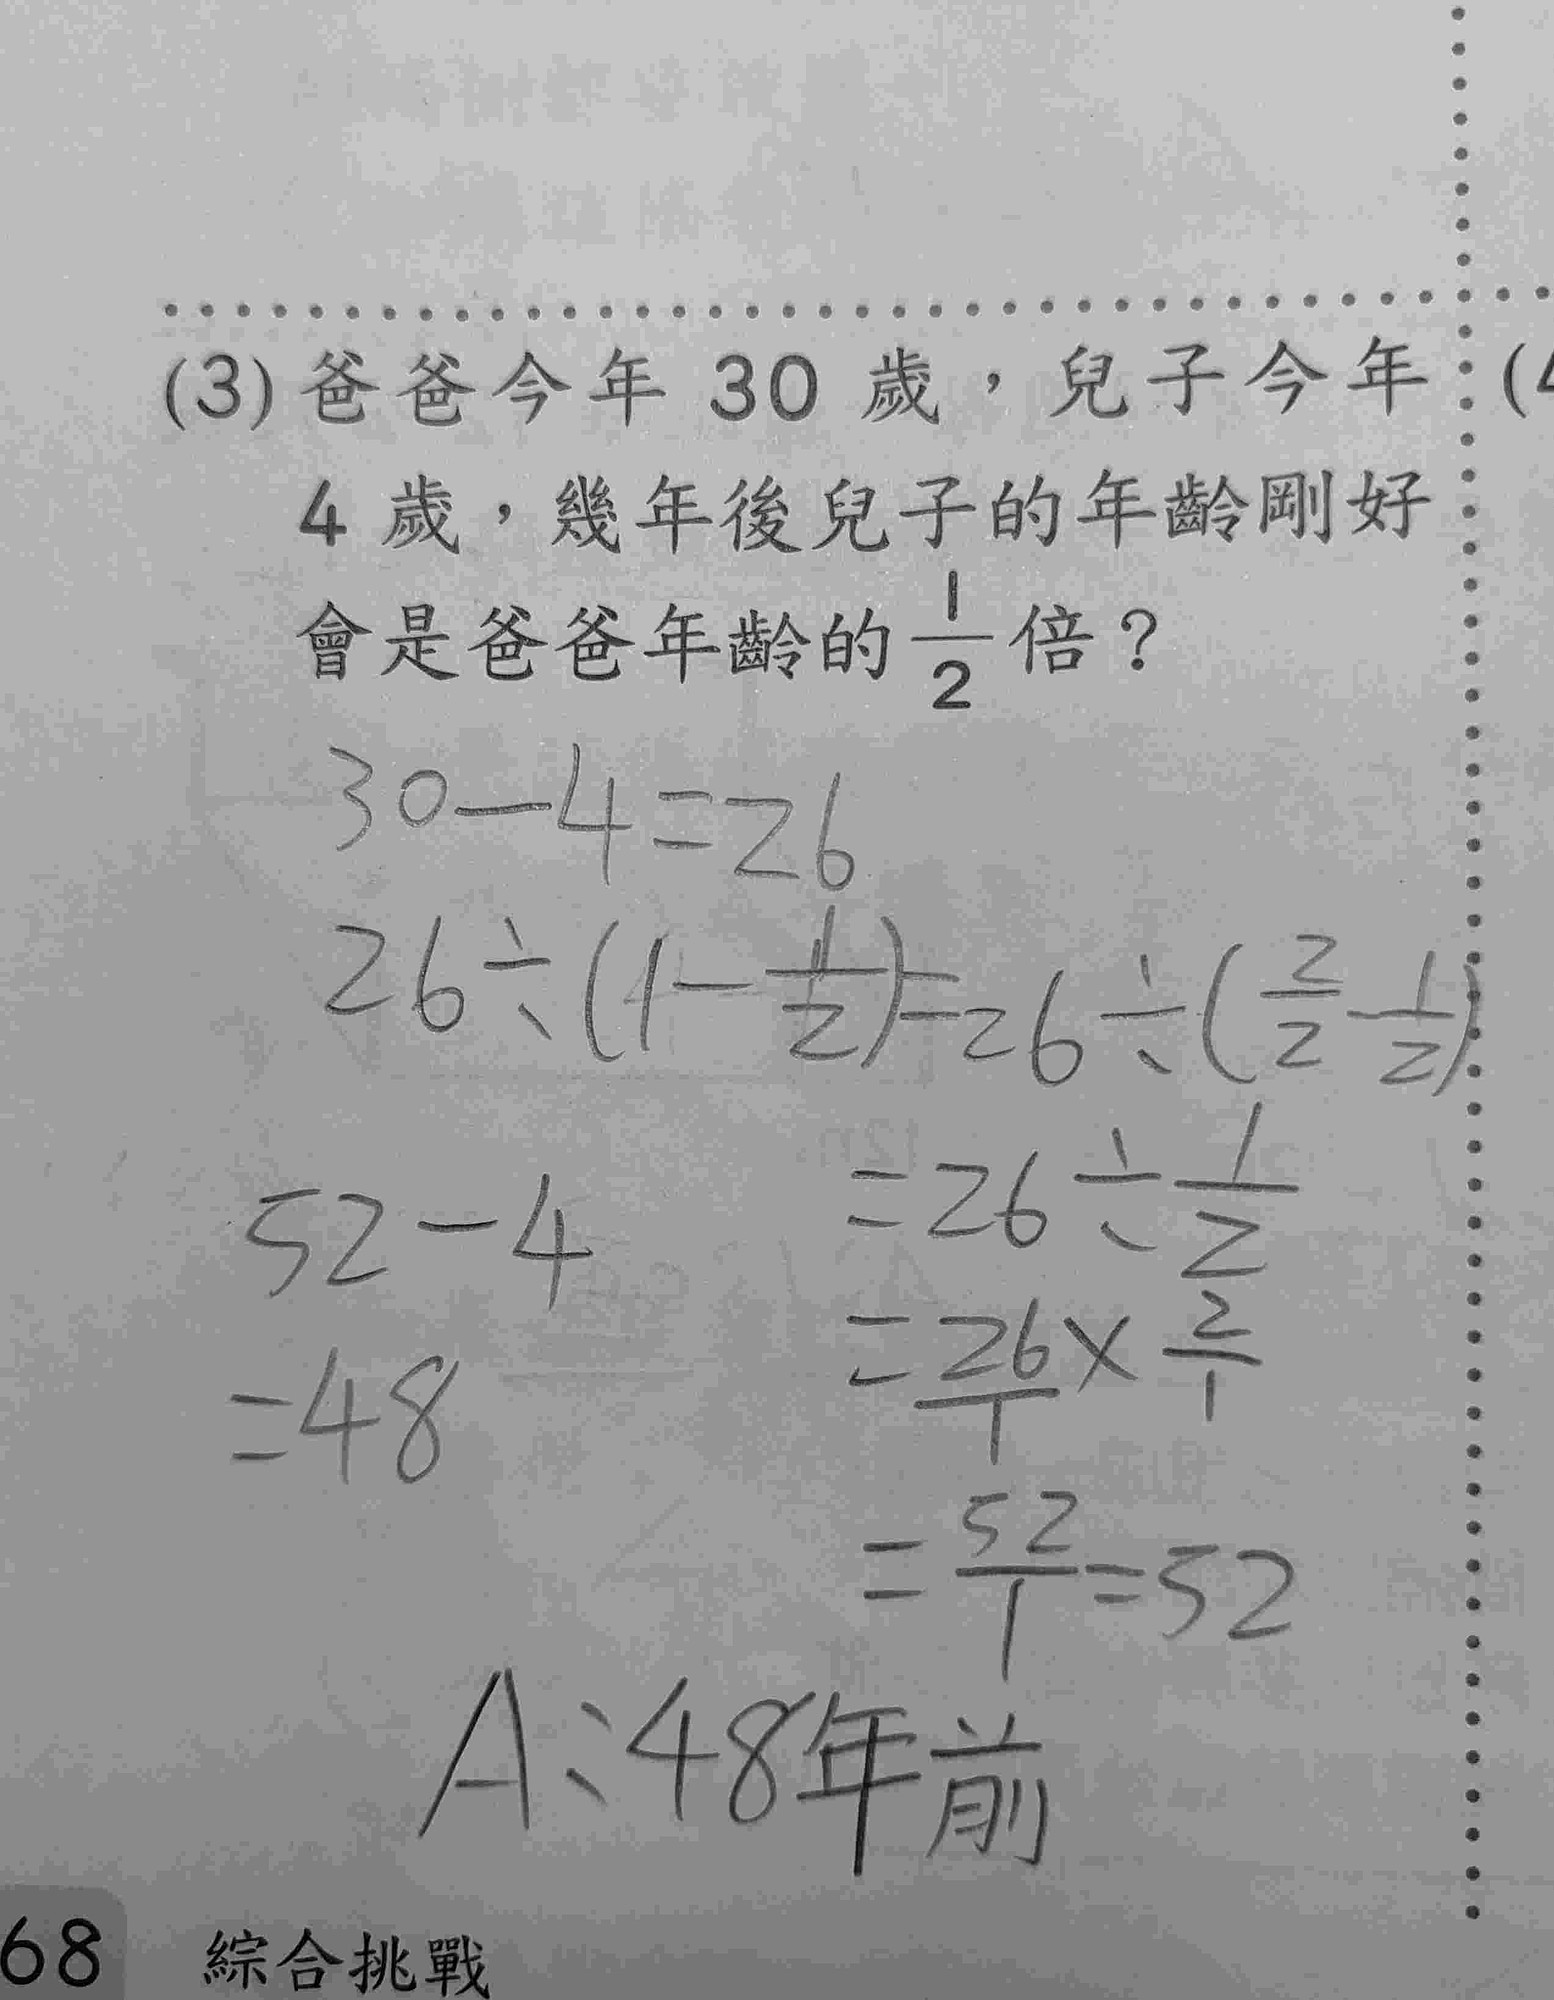 (3) 爸爸今年 30 歲，兒子今年
4 歲，幾年後兒子的年齡剛好
會是爸爸年齡的 1/2 倍？
30-4=26
26÷(1-1/2)=26÷(2/2-1/2)
=26÷1/2
=26/1×2/1
=52/1=52
52-4
=48
A:48年前
68 綜合挑戰